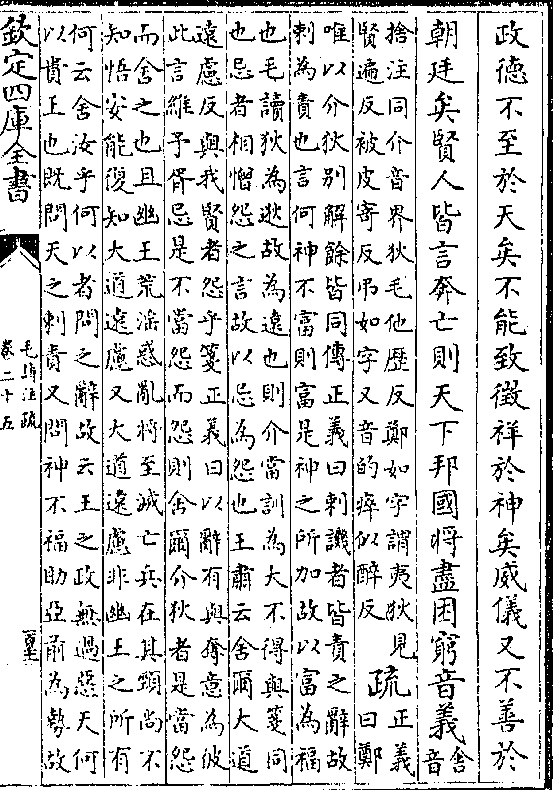 政德不至於天矣不能致徵祥於神矣威儀又不善於
朝廷矣賢人皆言奔亡則天下邦國將盡困窮音義舍音
捨注同介音界狄毛他歷反鄭如字謂夷狄見
賢遍反被皮寄反弔如字又音的瘁似醉反
疏正義曰鄭
唯以介狄别解餘皆同傳正義曰刺譏者皆責之辭故
刺為責也言何神不富則富是神之所加故以富為福
也毛讀狄為逖故為遠也則介當訓為大不得與箋同
也忌者相憎怨之言故以忌為怨也王肅云舍爾大道
遠慮反與我賢者怨乎箋正義曰以辭有與奪意為彼
此言維予胥忌是不當怨而怨則舍爾介狄者是當怨
而舍之也且幽王荒淫惑亂將至滅亡兵在其頸尚不
知悟安能復知大道遠慮又大道遠慮非幽王之所有
何云舍汝乎何以者問之辭故云王之政無過惡天何
以責王也既問天之刺責又問神不福助亞前為勢故
欽定四庫全書
毛詩注疏
卷二十五